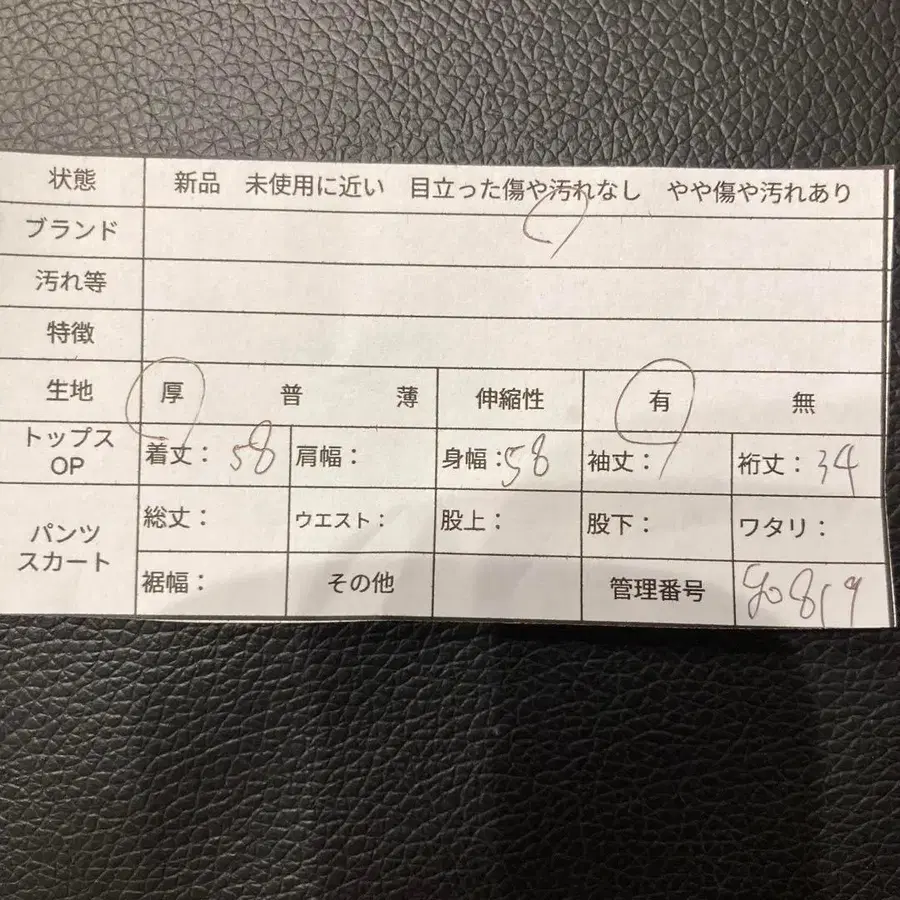 状態 新品 未使用に近い 目立った傷や汚れなし やや傷や汚れあり
ブランド
汚れ等
特徴
生地 厚 普 薄 伸縮性 有 無
トップス OP 着丈:58 肩幅: 身幅:58 袖丈: 裄丈:34
パンツ スカート 総丈: ウエスト: 股上: 股下: ワタリ:
裾幅: その他 管理番号